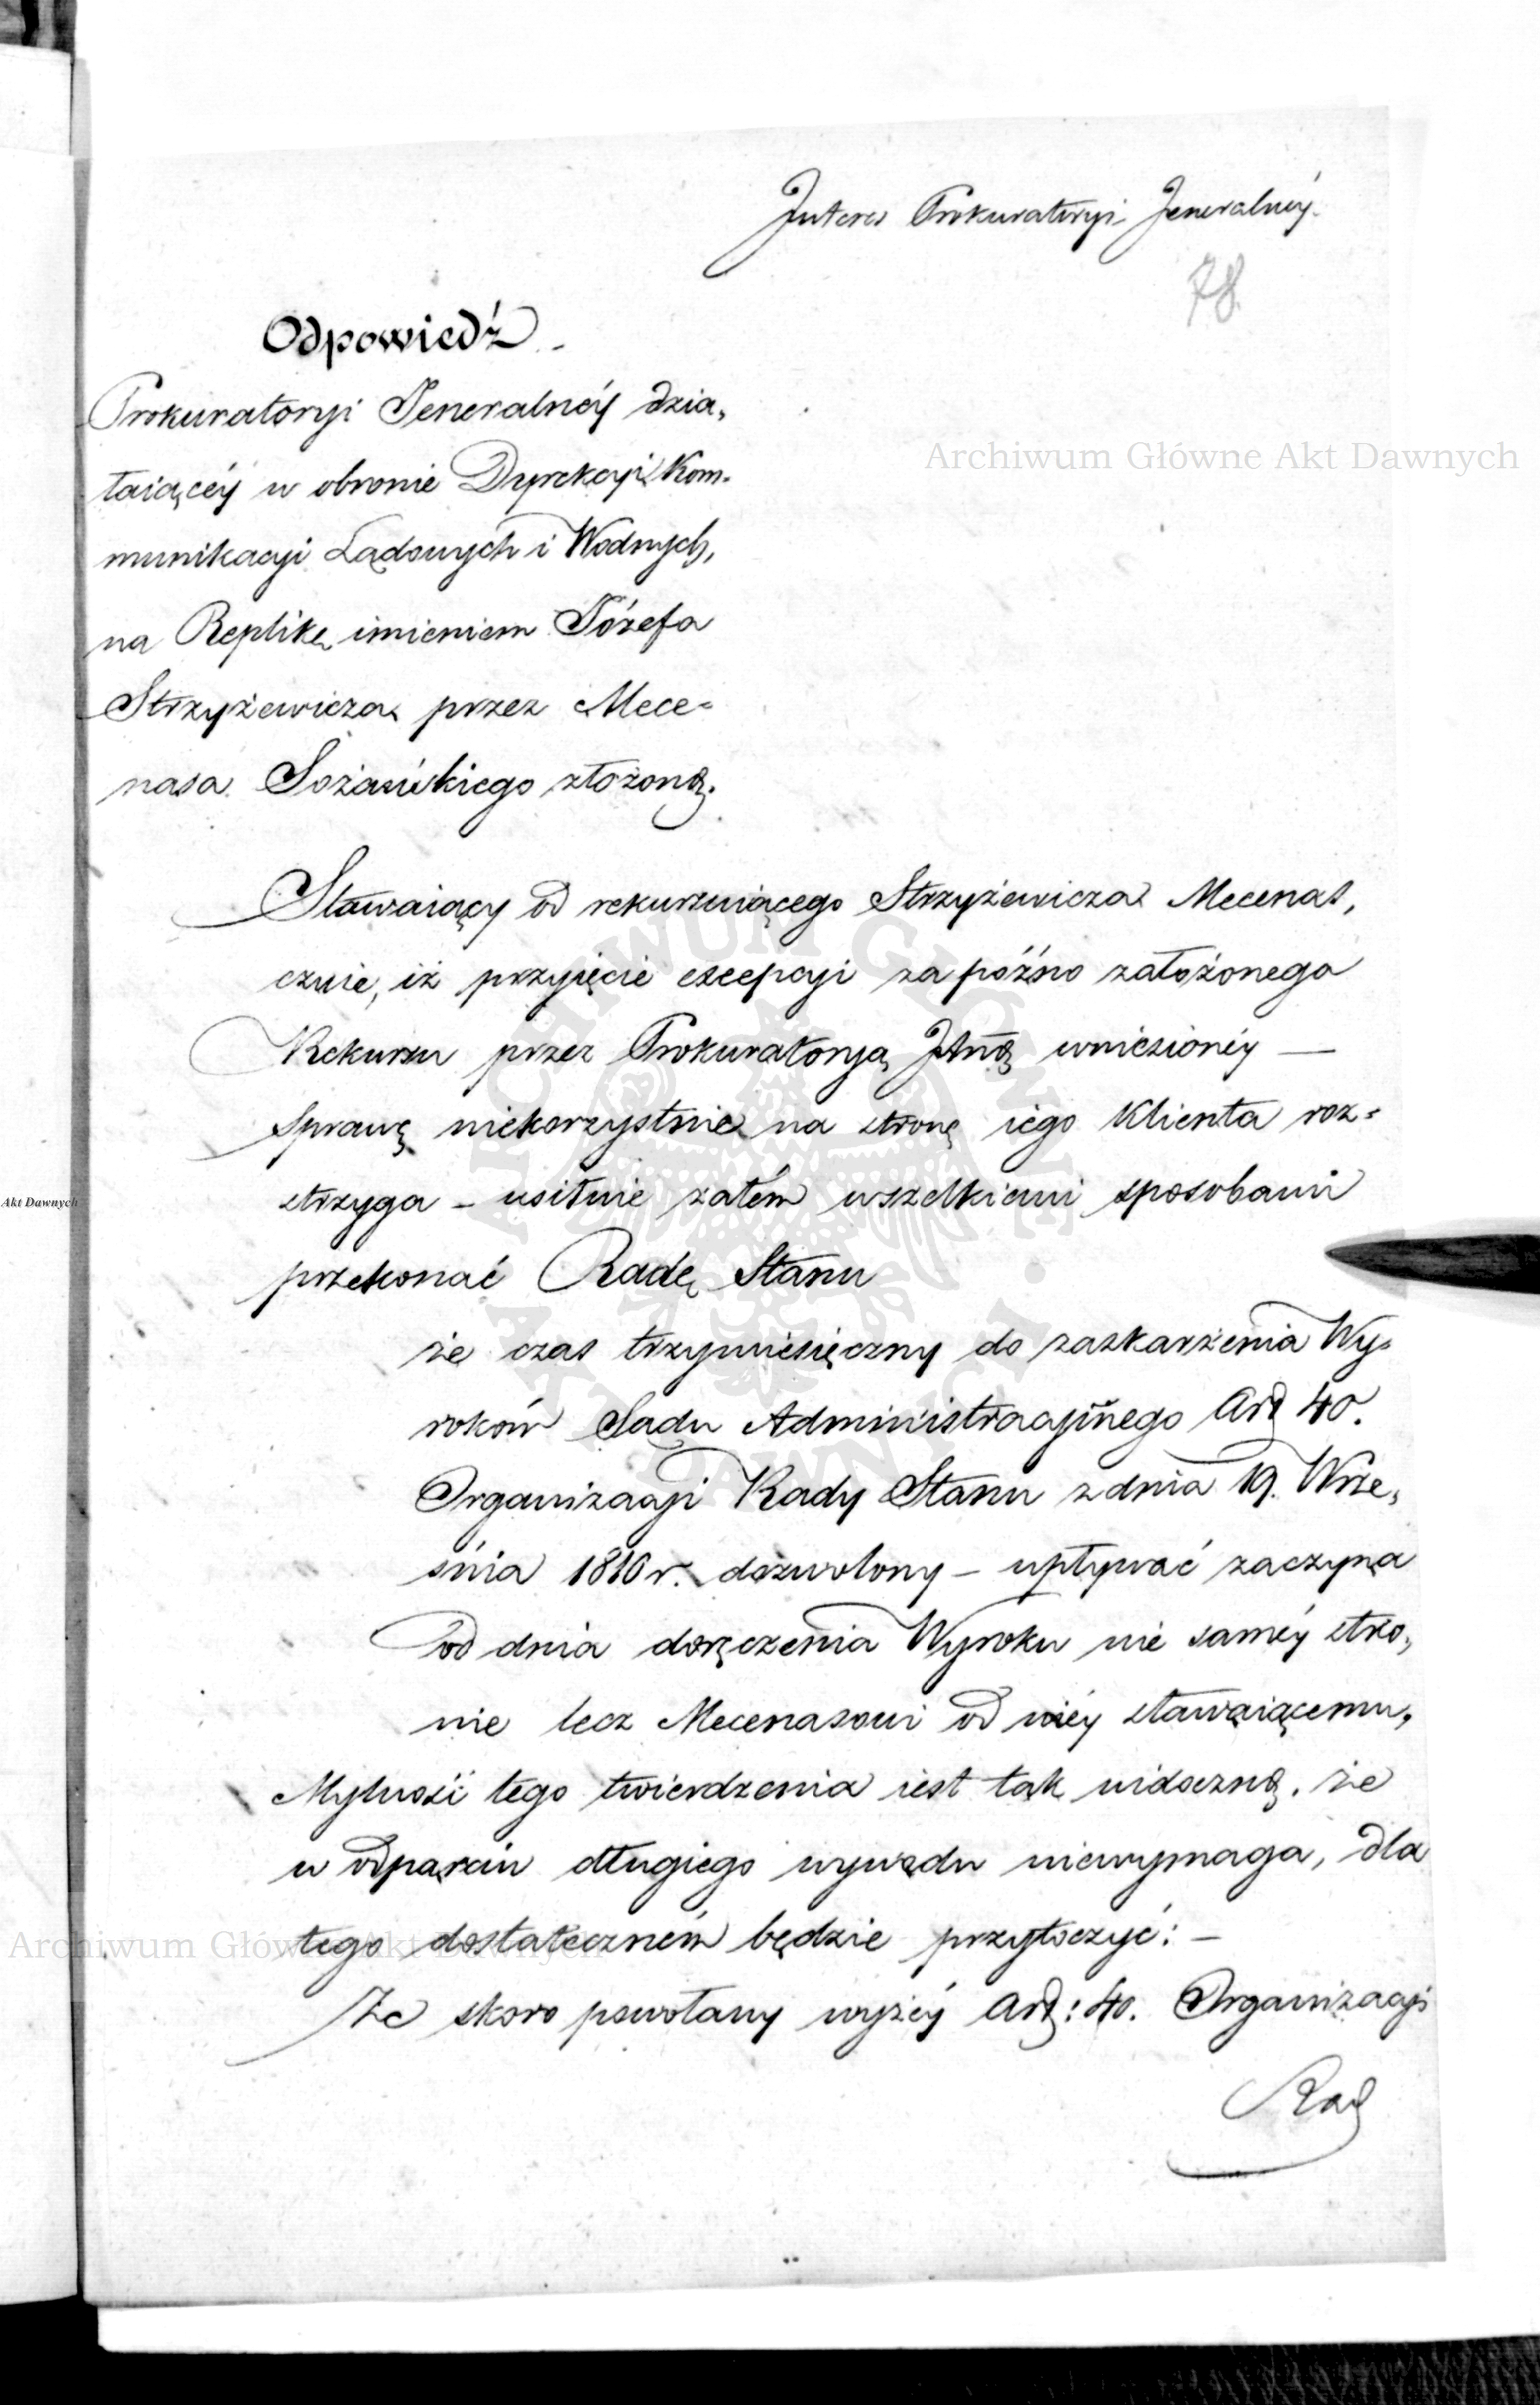 Interes Prokuratoryi Jeneralnéy.
78.
Odpowiedź.-
Prokuratoryi Jeneralnéy dzia,
łaiącéy w obronie Dyrekcyi Kom-
munikacyi Lądowych i Wodnych,
na Replikę imieniem Józefa
Strzyżewicza przez Mece=
nasa Sożańskiego złożoną.
Stawaiący od rekuruiącego Strzyżewicza Mecenas,
czuie, iż przyięcie excepcyi za późno założonego
Rekursu przez Prokuratoryą Jlną wniesionéy —
sprawę niekorzystnie na stronę iego Klienta roz=
strzyga – usiłuie zatém wszelkiemi sposobami
przekonać Radę Stanu
że czas trzymiesięczny do zaskarżenia Wy=
roków Sądu Administracyinego Art 40.
Organizacyi Rady Stanu z dnia 19. Wrze,
śnia 1810 r. dozwolony – upływać zaczyna
od dnia doręczenia Wyroku nie saméy stro,
nie lecz Mecenasowi od niéy stawaiącemu,
Mylność tego twierdzenia iest tak widoczną, że
w odparciu długiego wywodu niewymaga, dla
tego dostateczném będzie przytoczyć: –
Że skoro powołany wyżéy Art: 40. Organizacyi
Rad
Archiwum Główne Akt Dawnych
Akt Dawnych
ARCHIWUM GŁÓWNE AKT DAWNYCH
Archiwum Główne Akt Dawnych